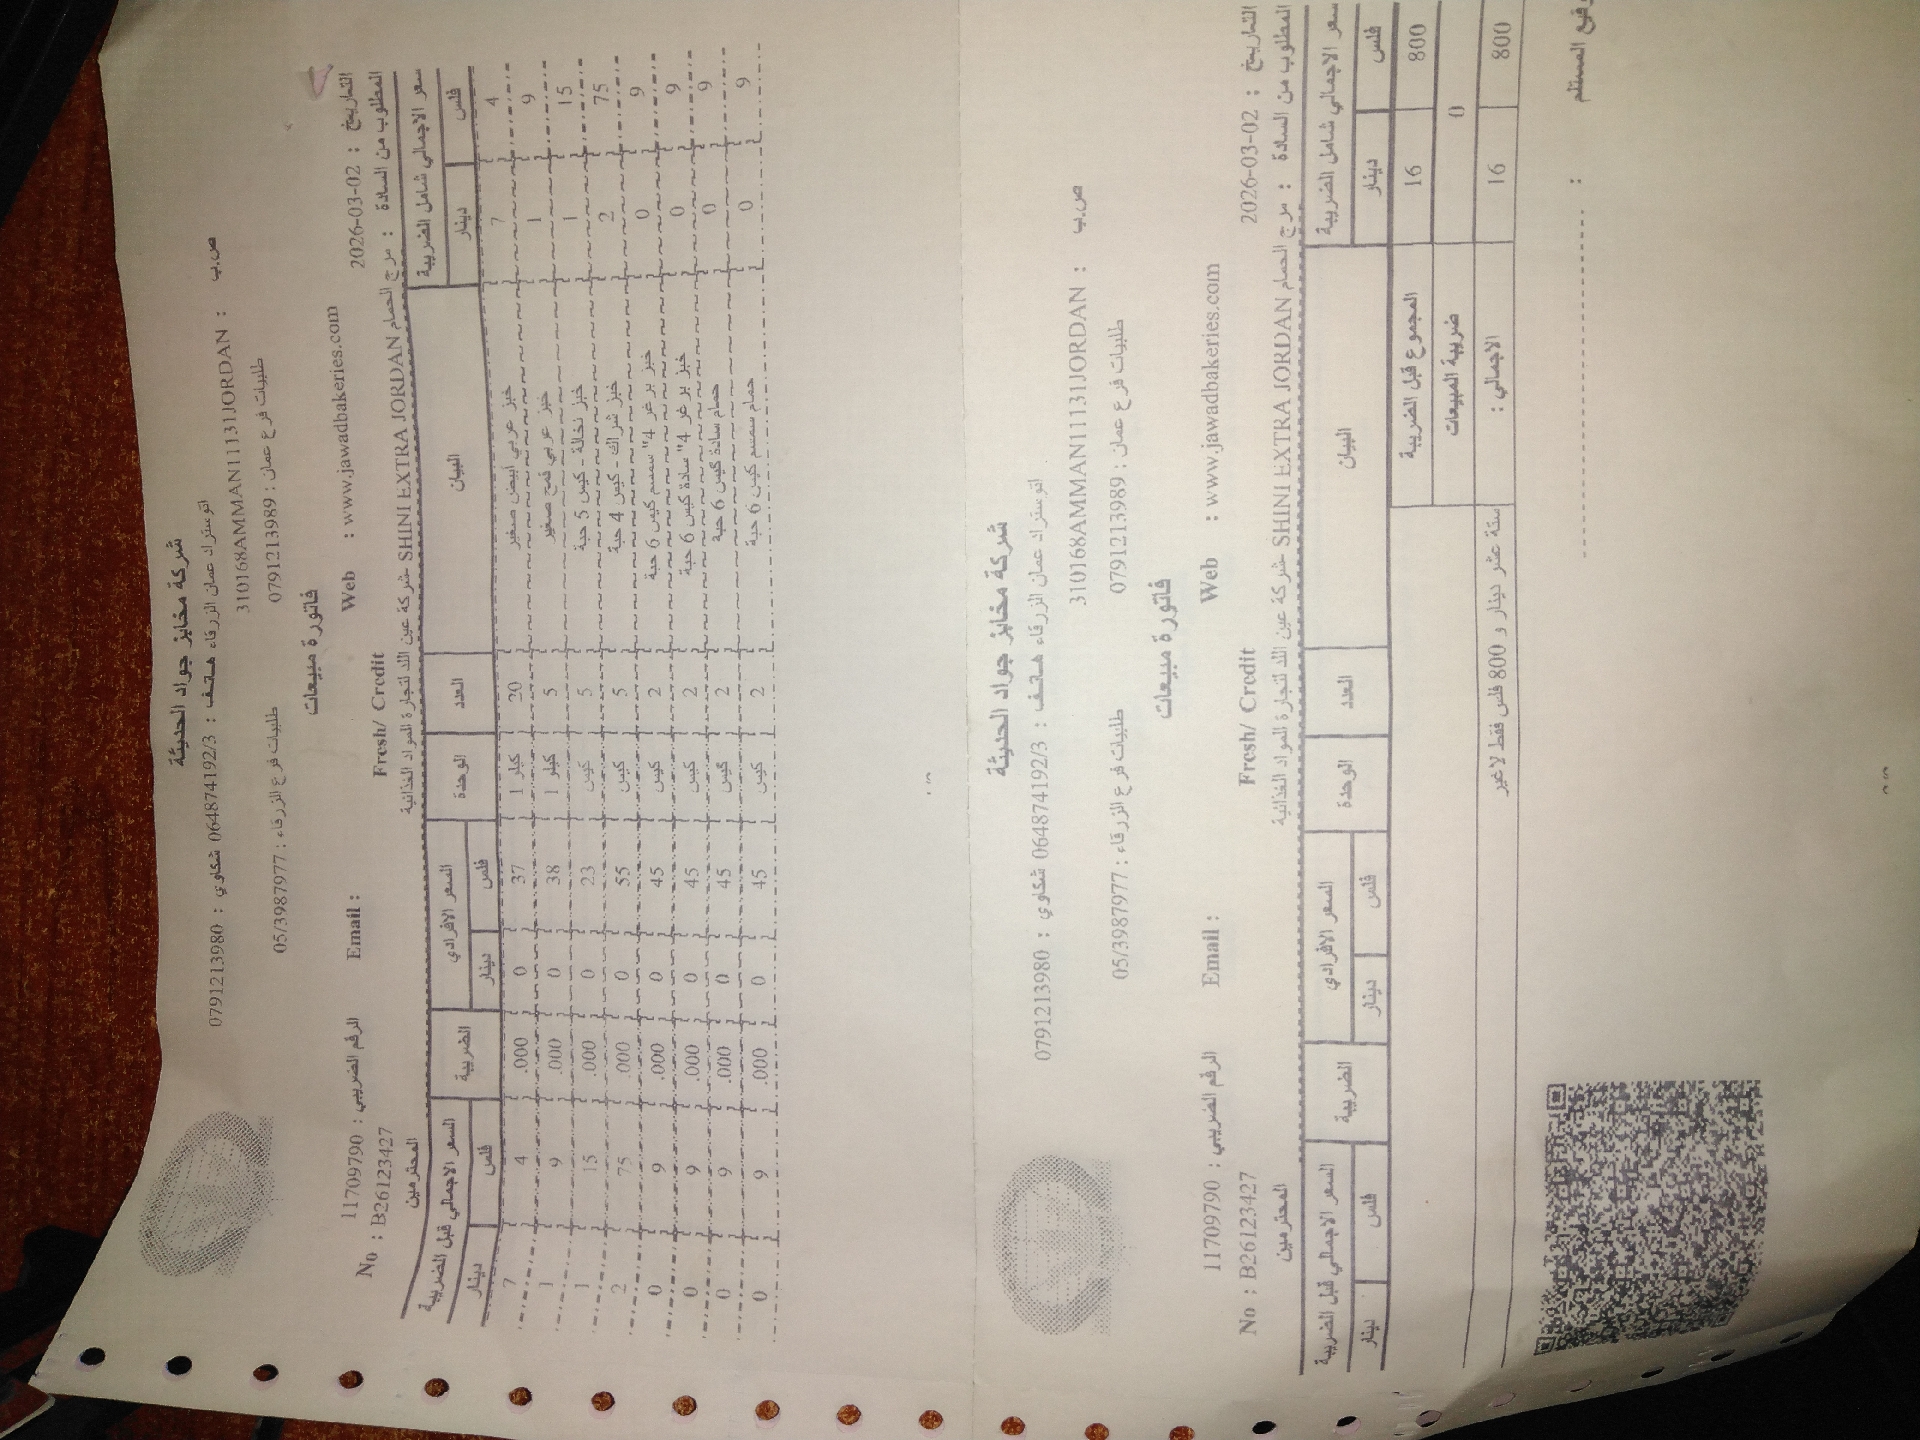 شركة مخابز جواد الحديثة
اتوستراد عمان الزرقاء هـاتـف : 064874192/3 شكاوي : 0791213980
ص.ب : 310168AMMAN11131JORDAN
طلبيات فرع عمان : 0791213989 طلبيات فرع الزرقاء : 05/3987977
فاتورة مبيعات
التاريخ : 2026-03-02 Web : www.jawadbakeries.com Email : الرقم الضريبي : 11709790
Fresh/ Credit No : B26123427
المطلوب من السادة : مرج الحمام SHINI EXTRA JORDAN -شركة عين اللد لتجارة المواد الغذائية المحترمين
سعر الاجمالي شامل الضريبية البيان العدد الوحدة السعر الافرادي الضريبية السعر الاجمالي قبل الضريبية
فلس دينار فلس دينار فلس دينار
4 7 خبز عربي ابيض صغير 20 كيلر 1 37 0 .000 4 7
9 1 خبز عربي قمح صغير 5 كيلر 1 38 0 .000 9 1
15 1 خبز نخالة - كيس 5 حبة 5 كيس 23 0 .000 15 1
75 2 خبز شراك - كيس 4 حبة 5 كيس 55 0 .000 75 2
9 0 خبز برغر 4" سمسم كيس 6 حبة 2 كيس 45 0 .000 9 0
9 0 خبز برغر 4" سادة كيس 6 حبة 2 كيس 45 0 .000 9 0
9 0 حمام سادة كيس 6 حبة 2 كيس 45 0 .000 9 0
9 0 حمام سمسم كيس 6 حبة 2 كيس 45 0 .000 9 0
شركة مخابز جواد الحديثة
اتوستراد عمان الزرقاء هـاتـف : 064874192/3 شكاوي : 0791213980
ص.ب : 310168AMMAN11131JORDAN
طلبيات فرع عمان : 0791213989 طلبيات فرع الزرقاء : 05/3987977
فاتورة مبيعات
التاريخ : 2026-03-02 Web : www.jawadbakeries.com Email : الرقم الضريبي : 11709790
Fresh/ Credit No : B26123427
المطلوب من السادة : مرج الحمام SHINI EXTRA JORDAN -شركة عين اللد لتجارة المواد الغذائية المحترمين
سعر الاجمالي شامل الضريبية البيان العدد الوحدة السعر الافرادي الضريبية السعر الاجمالي قبل الضريبية
فلس دينار فلس دينار فلس دينار
800 16 المجموع قبل الضريبية
0 ضريبة المبيعات
800 16 الاجمالي : ستة عشر دينار و 800 فلس فقط لا غير
المستلم :